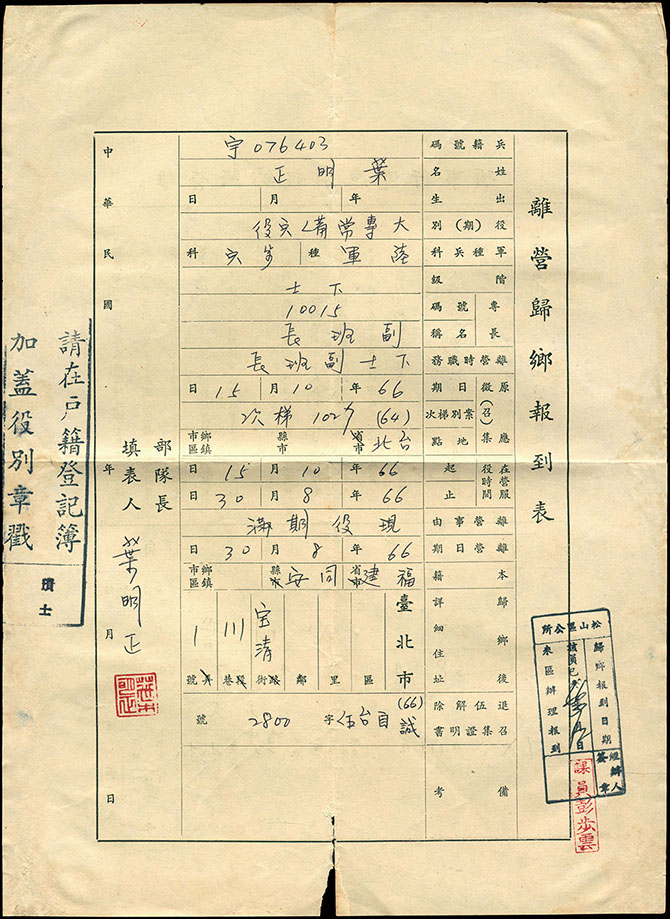 離營歸鄉報到表
兵籍號碼 宇076403
姓名 葉明正
出生 年 月 日
役(期)別 大專常備兵役
軍種兵科 陸軍種 步兵科
階級 下士
專長 號碼 10015
名稱 副班長
離營時職務 下士副班長
原徵(召)集 日期 66年10月15日
業別梯次 (64) 102梯次
應徵集地點 台北省市 縣市 鄉鎮市區
在營服役時間 起 66年10月15日
止 66年8月30日
離營事由 現役期滿
離營日期 66年8月30日
本籍 福建省市 同安縣市 鄉鎮市區
歸鄉後詳細住址 臺北市 區 里 鄰 宝清街路 段 川巷 弄 1號
退伍解除召集證明書 (66)誠 字 2800 號
備考
部隊長
填表人 葉明正
中華民國 年 月 日
請在戶籍登記簿
加蓋役別章戳
松山區公所
歸鄉報到日期
該員已於 月 日
來區辦理報到
經辦人簽章
課員彭步雲